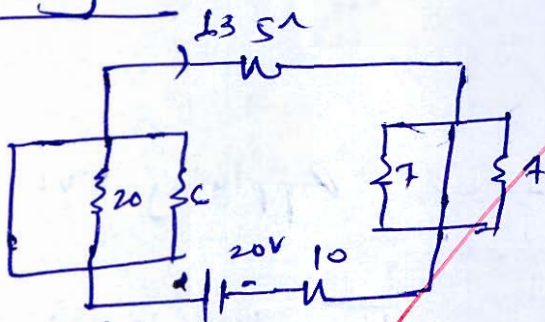 I3 5Ω
20 6 7 7
20V 10